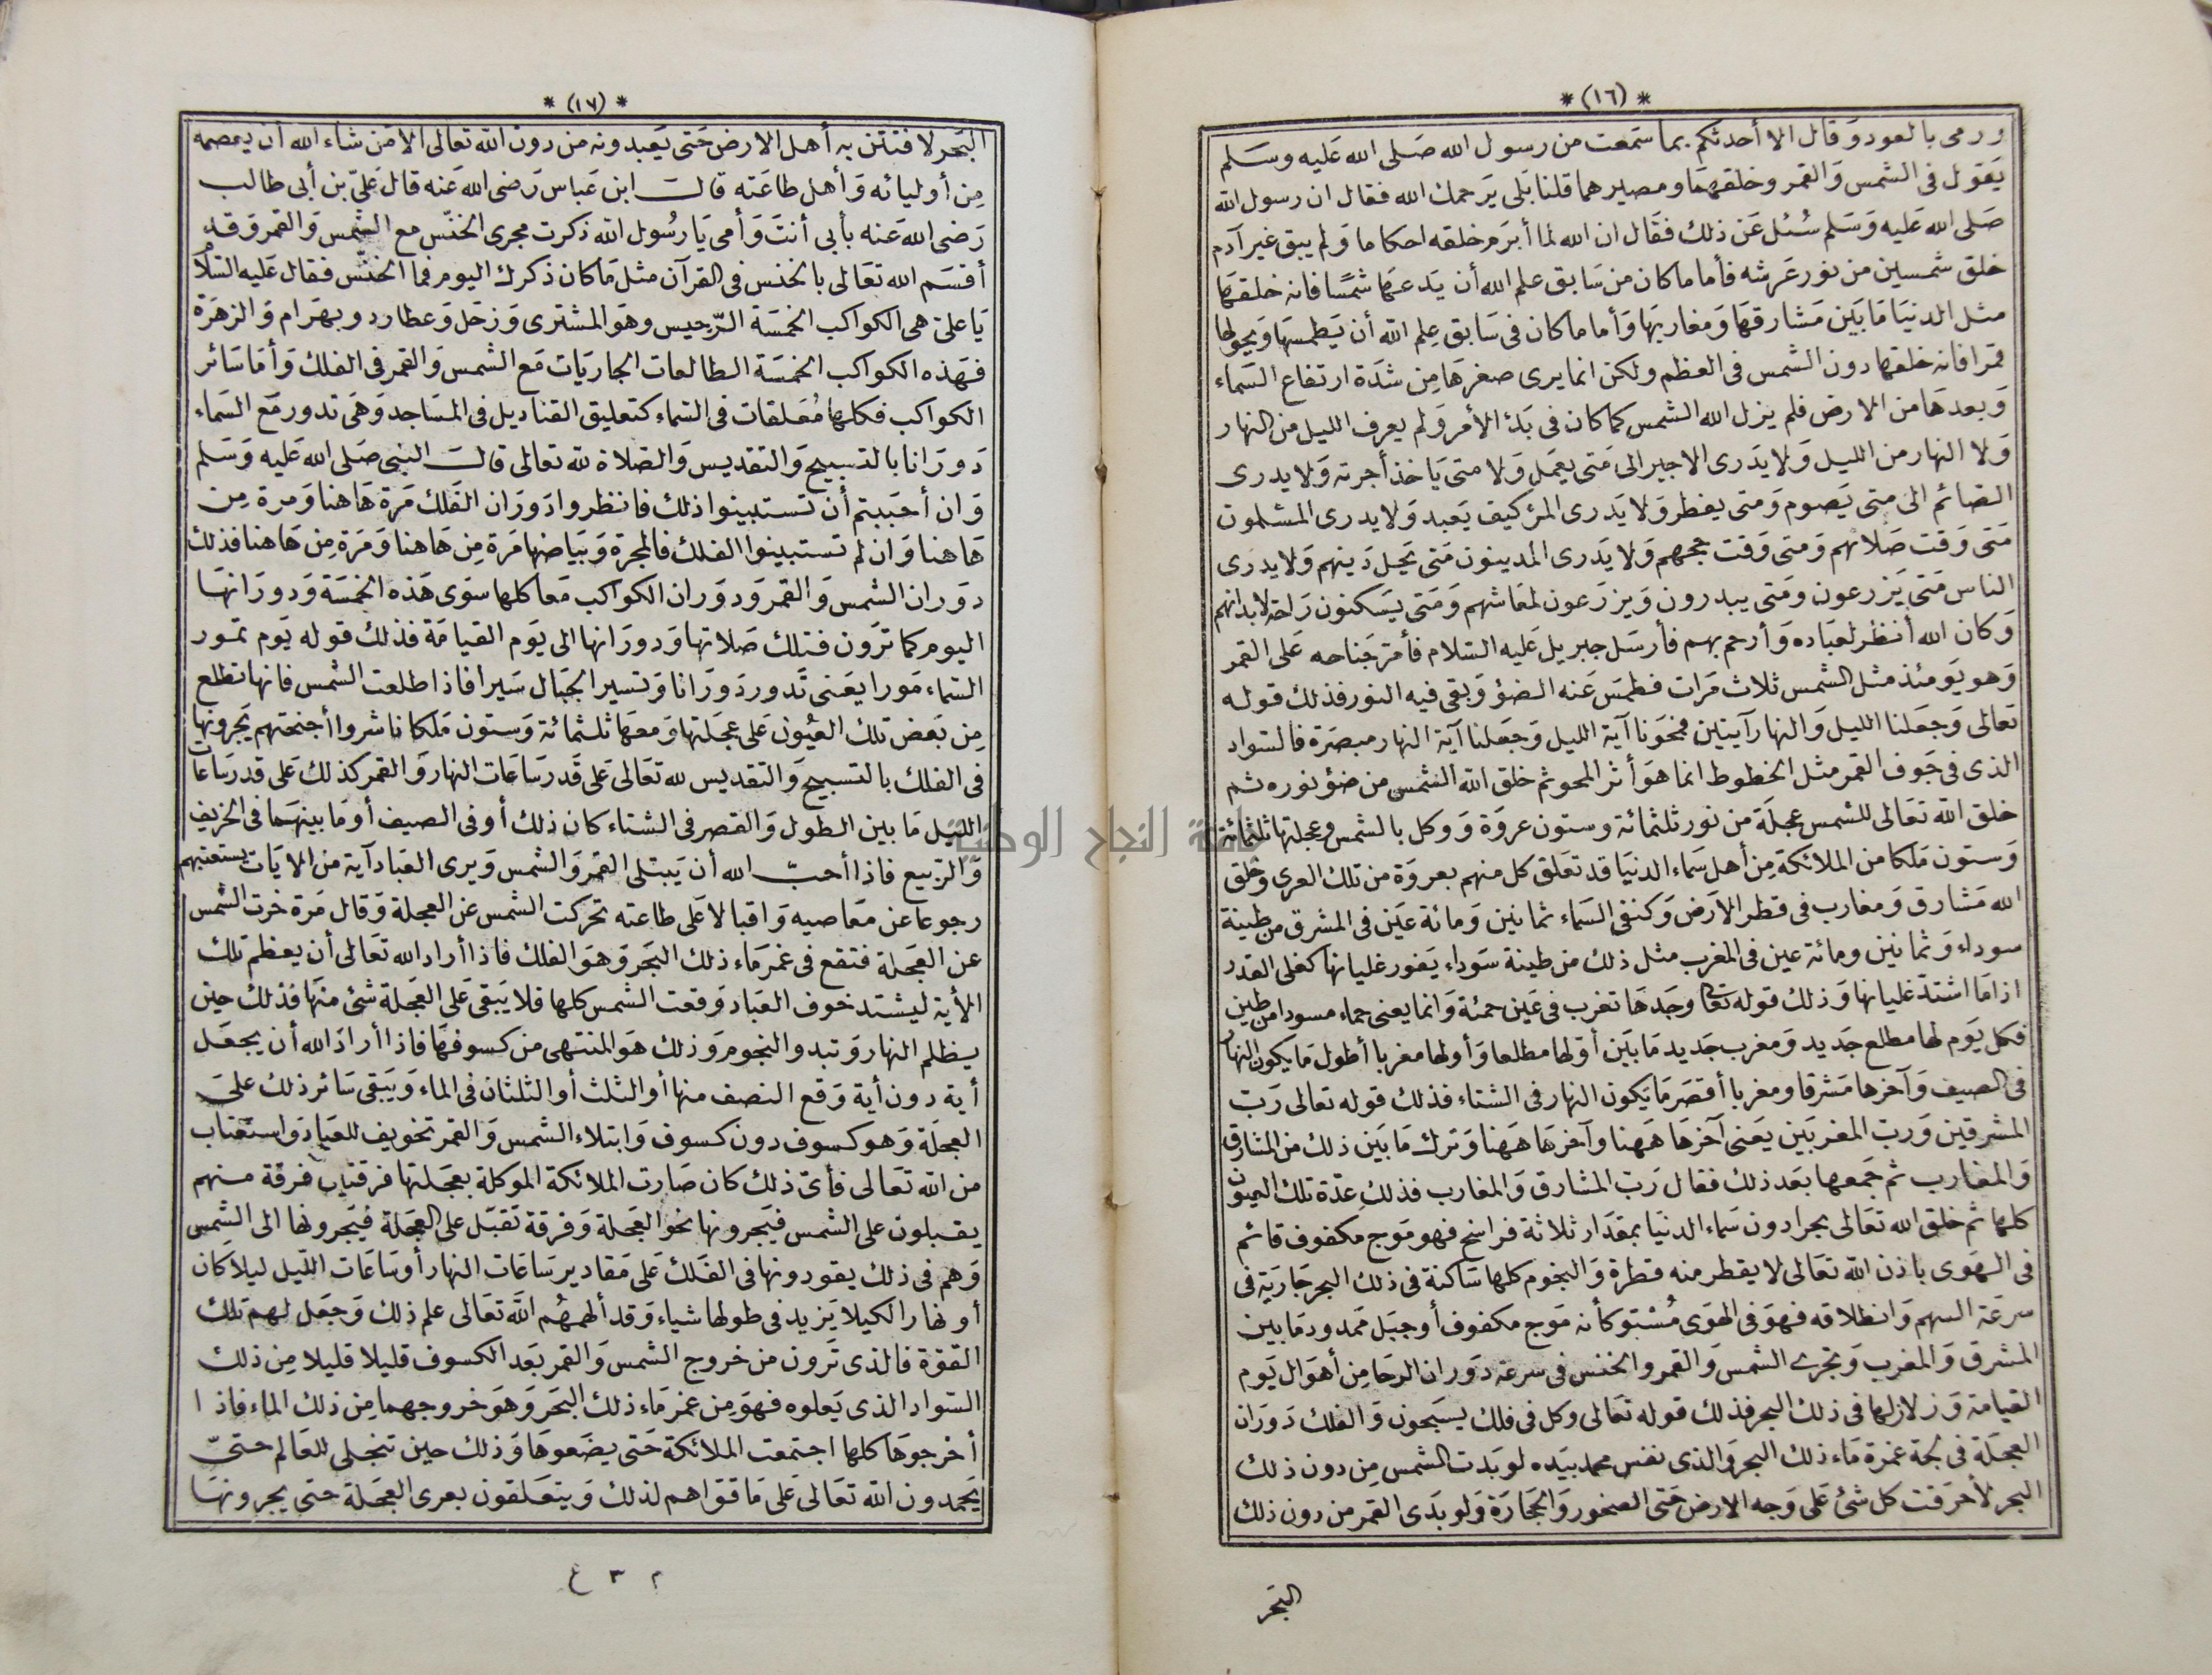 * (١٦) *
ورمى بالعود وَقال الا أحدثكم بما سَمَعت من رسول الله صَلى الله عَليه وسَلم
يَقول فى الشمس وَالقمر وخلقهمَا ومصيرهما قلنا بَلى يَرحمك الله فقال ان رسول الله
صَلى الله عَليه وَسَلم سُئل عَن ذلك فقَال ان الله لما أبرَم خلقه احكاما وَلم يبق غير آدم
خلق شمسين من نور عَرشه فأما ما كان من سَابق علم الله أن يَدعهَا شمسًا فانه خلقهَا
مثل الدنيَا مَا بَين مَشارقهَا وَمغاربهَا وَأما ما كان فى سَابق عِلم الله أن يَطمسهَا وَيحولها
قمرا فانه خلقها دون الشمس فى العظم ولكن انما يرى صغرهَا مِن شدَة ارتفاع السَماء
وَبعدهَا من الارض فلم يزل الله الشمس كما كان فى بَدْء الأمر وَلم يعرف الليل من النهار
وَلا النهار من الليل وَلا يَدرى الاجير الى مَتى يعمَل وَلا متى يَاخذ أجرته وَلا يدرى
الصَائم الى متى يَصوم وَمتى يفطر وَلا يَدرى المرْء كيف يَعبد وَلا يدرى المسْلمون
مَتى وَقت صَلاتهم وَمتى وَقت حجهم وَلا يَدرى المدينون مَتى يَحِل دَينهم وَلا يدرى
الناس مَتى يَزرعون وَمَتى يبدرون وَيزرَعون لمعَاشهم وَمَتى يَسَكنون رَاحة لابدانهم
وَكان الله أنظر لعبَاده وَأرحم بهم فأرسَل جبريل عَليه السَلام فأمرّ جَناحه عَلى القمر
وَهو يَومئذ مثل الشمس ثلاث مَرات فطمسَ عَنه الضوْ وَبقى فيه النور فذلك قوله
تعَالى وَجعَلنا الليل وَالنهار آيتين فمحَونا آية الليل وَجعَلنا آية النهار مبصَرة فالسَواد
الذى فى جَوف القمر مثل الخطوط انما هوَ أثر المحو ثم خلق الله الشمس من ضوْ نوره ثم
خلق الله تعَالى للشمس عجلَة من نور ثلثمائة وستون عروَة وَوكل بالشمس وعجلتها ثلثمائة
وَستون مَلكا من الملائكة مِن أهل سَماء الدنيَا قد تعَلق كل منهم بعروَة من تلك العرى وخلق
الله مَشارق وَمغارب فى قطر الارَض وَكنفى السَماء ثمانين وَمائة عَين فى المشرق من طينة
سوداء وَثمانين ومائة عين فى المغرب مثل ذلك من طينة سَوداء يَفور غليانها كغلى القدر
اذا مَا اشتدّ غليانها وَذلك قوله تعا وجَدهَا تغرب فى عَين حمئة وَانما يعنى حماء مسودا من طين
فكل يَوم لها مطلع جَديد وَمغرب جَديد مَا بَين أوّلها مطلعا وَأولها مغربا أطول مَا يكون النهار
فى الصيف وَآخرها مَشرقا ومغربا أقصَر مَا يَكون النهار فى الشتاء فذلك قوله تعالى رَب
المشرقين وَرب المغربَين يَعنى آخرهَا هَهنا وآخرهَا هَهنا وَترك مَا بَين ذلك من المشارق
وَالمغارب ثم جَمعها بَعد ذلك فقال رَب المشارق وَالمغارب فذلك عِدّة تلك العيون
كلها ثم خلق الله تعَالى بحرا دون سَماء الدنيَا بمقدَار ثلاثة فراسخ فهو مَوج مَكفوف قائم
فى الهوَى باذن الله تعَالى لا يقطر منه قطرة وَالنجوم كلها سَاكنة فى ذلك البحر جَاريَة فى
سرعَة السهم وَانطلاقه فهوَ فى الهوَى مُسْتو كأنه مَوج مكفوف أو جبَل مَمدود مَا بين
المشرق وَالمغرب وَتجرى الشمسَ وَالقمر والخنس فى سرعة دَوران الرحَا مِن أهوَال يَوم
القيامة وَزلازلها فى ذلك البحر فذلك قوله تعَالى وكل فى فلك يسبَحون وَالفلك دَوَران
العجلَة فى لجة غمرَة مَاء ذلك البحر وَالذى نفس محمد بيَده لو بَدت الشمس مِن دون ذلك
البحر لأحرَقت كل شئ عَلى وَجه الارض حَتى الصخور وَالحجَارَة وَلو بَدى القمر من دون ذلك
البَحر
* (١٧) *
البَحر لافتتن به أهل الارض حَتى يَعبدونه من دون الله تعَالى الا مَن شاء الله أن يعصمه
مِن أوليائه وَأهل طاعَته قال ابن عَباس رَضى الله عَنه قال عَليّ بن أبى طالب
رَضى الله عَنه بأبى أنتَ وَأمى يَا رسُول الله ذكرت مجرى الخنّس مع الشمس وَالقمر وَقد
أقسَم الله تعَالى بالخنس فى القرآن مثل مَا كان ذكرك اليوم فما الخنّس فقال عَليه السَلام
يَا على هى الكواكب الخمسَة البرجيس وهوَ المشترى وَزحَل وَعطارد وبهرَام وَالزهرَة
فهَذه الكواكب الخمسَة الطالعات الجاريَات مَع الشمس وَالقمر فى الفلك وَأمَا سَائر
الكواكب فكلها مُعَلقات فى السَماء كتعليق القناديل فى المسَاجد وَهى تدور مَع السَماء
دَورَانا بالتسبيح وَالتقديس وَالصَلاة لله تعَالى قال النبى صَلى الله عَليه وَسَلم
وَان أحبَبتم أن تَستبينوا ذلك فانظروا دَوَران الفَلك مَرة هَاهنا وَمرة مِن
هَاهنا وَان لم تستبينوا الفلك فالمجرة وَبَياضها مَرة مِن هَاهنا وَمَرة مِن هَاهنا فذلك
دوَران الشمس وَالقمر وَدوَران الكواكب مَعا كلها سوَى هَذه الخمسَة وَدورَانهَا
اليوم كما ترَون فتلك صَلاتها وَدورَانها الى يَوم القيامَة فذلك قوله يَوم تمور
السَماء مَورا يعَنى تَدور دَورَانا وَتسير الجبَال سَيرا فاذا طلعت الشمس فانها تطلع
مِن بَعض تلك العيُون عَلى عجَلتها وَمعهَا ثلثمائة وَستون مَلكا ناشروا أجنحتهم يَجرونها
فى الفلك بالتسبيح وَالتقديس لله تعَالى عَلى قَدر سَاعَات النهار وَالقمر كذلك عَلى قدر سَاعَات
الليل مَا بين الطول وَالقصر فى الشتاء كان ذلك أو فى الصيف أو مَا بينهمَا فى الخريف
وَالرَّبيع فاذا أحبّ الله أن يَبتلى القمر وَالشمس وَيرى العبَاد آية من الايَات يستعتبهم
رجوعا عن معَاصيه وَاقبالا عَلى طاعته تحركت الشمس عَن العجلة وَقال مَرة خرت الشمس
عن العجَلة فتقع فى غمر مَاء ذلك البَحر وَهوَ الفلك فاذا أراد الله تعَالى أن يعظم تلك
الأية ليشتد خوف العبَاد وَقعت الشمس كلها فلا يَبقى عَلى العجَلة شئ منهَا فذلك حِين
يظلم النهار وَتبدو النجوم وَذلك هوَ المنتهى من كسوفهَا فاذا أرادَ الله أن يجعَل
أية دون أية وَقع النصف منها أو الثلث أو الثلثان فى الماء وَيَبقى سَائر ذلك عَلىَ
العجلَة وَهو كسوف دون كسوف وَابتلاء الشمس وَالقمر تخويف للعبَاد وَاستعتاب
من الله تعَالى فأىّ ذلك كان صَارت الملائكة الموكلة بعجَلتها فرقتين فرقة منهم
يقبلون على الشمس فيَجرونها نحو العجَلة وَفرقة تقبَل على العجَلة فيَجرونها الى الشمس
وَهم فى ذلك يقودونها فى الفَلك عَلى مَقادير سَاعَات النهار أو سَاعَات الليل ليلا كان
أو نهارا لكيلا يَزيد فى طولها شياء وَقد ألهمهُم الله تعَالى علم ذلك وَجعَل لهم تلك
القوة فالذى تَرون من خروج الشمس وَالقمر بعَد الكسوف قليلا قليلا مِن ذلك
السَواد الذى يَعلوه فهوَ مِن غمر مَاء ذلك البَحر وَهوَ خروجهما مِن ذلك الماء فاذا
أخرجوهَا كلها اجتمعت الملائكة حَتى يضَعوهَا وَذلك حين تنجلى للعَالم حتىّ
يَحمدون الله تعَالى عَلى مَا قوّاهم لذلك وَيتعَلقون بعرى العجَلة حتى يجرونهَا
م ٣ ع
جامعة النجاح الوطنية